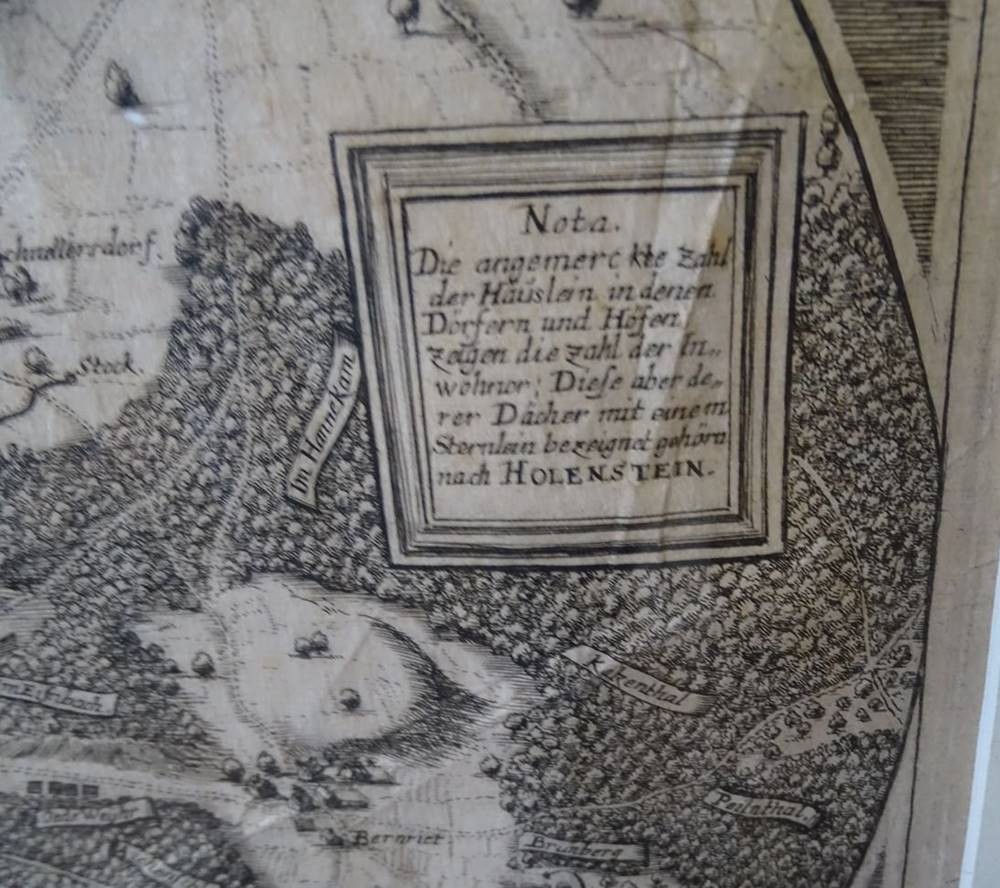 Nota.
Die angemerckte Zahl
der Häuslein in denen
Dörfern und Höfen,
zeigen die Zahl der In„
wohner; Diese aber de„
rer Dächer mit einem
Sternlein bezeignet gehörn
nach HOLENSTEIN.
chnallersdorf.
Stock.
Im Hainckam
Bernriet
Brunberg